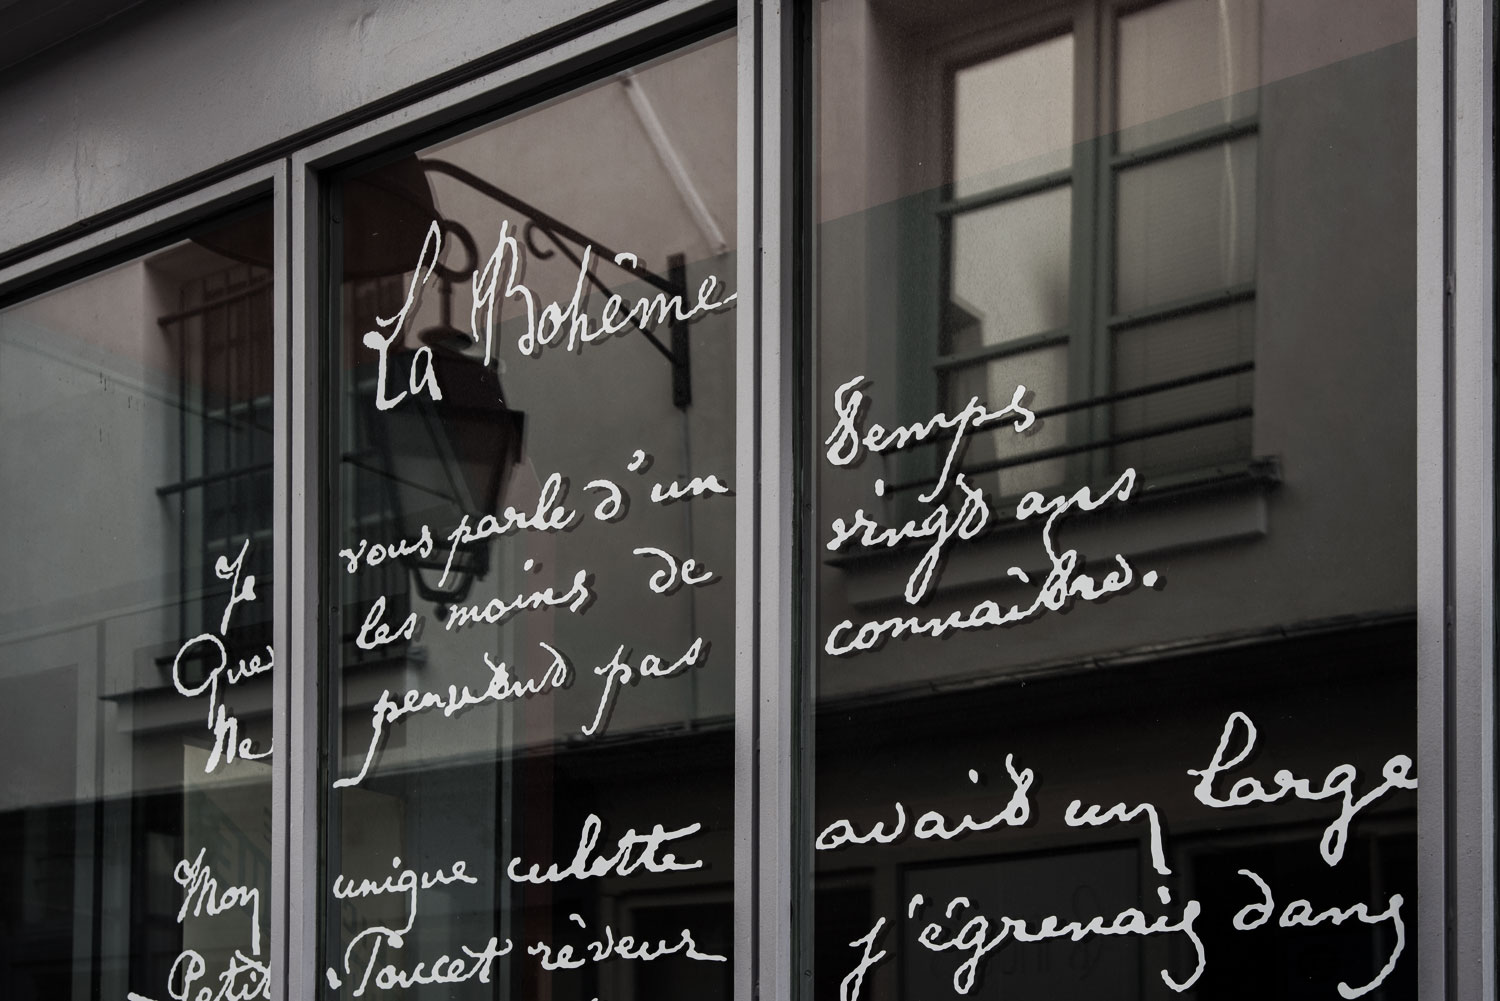 La Bohême
Je vous parle d'un Temps
Que les moins de vingt ans
Ne peuvent pas connaître.
Mon unique culotte avait un large
Petit Poucet rêveur j'égrenais dans